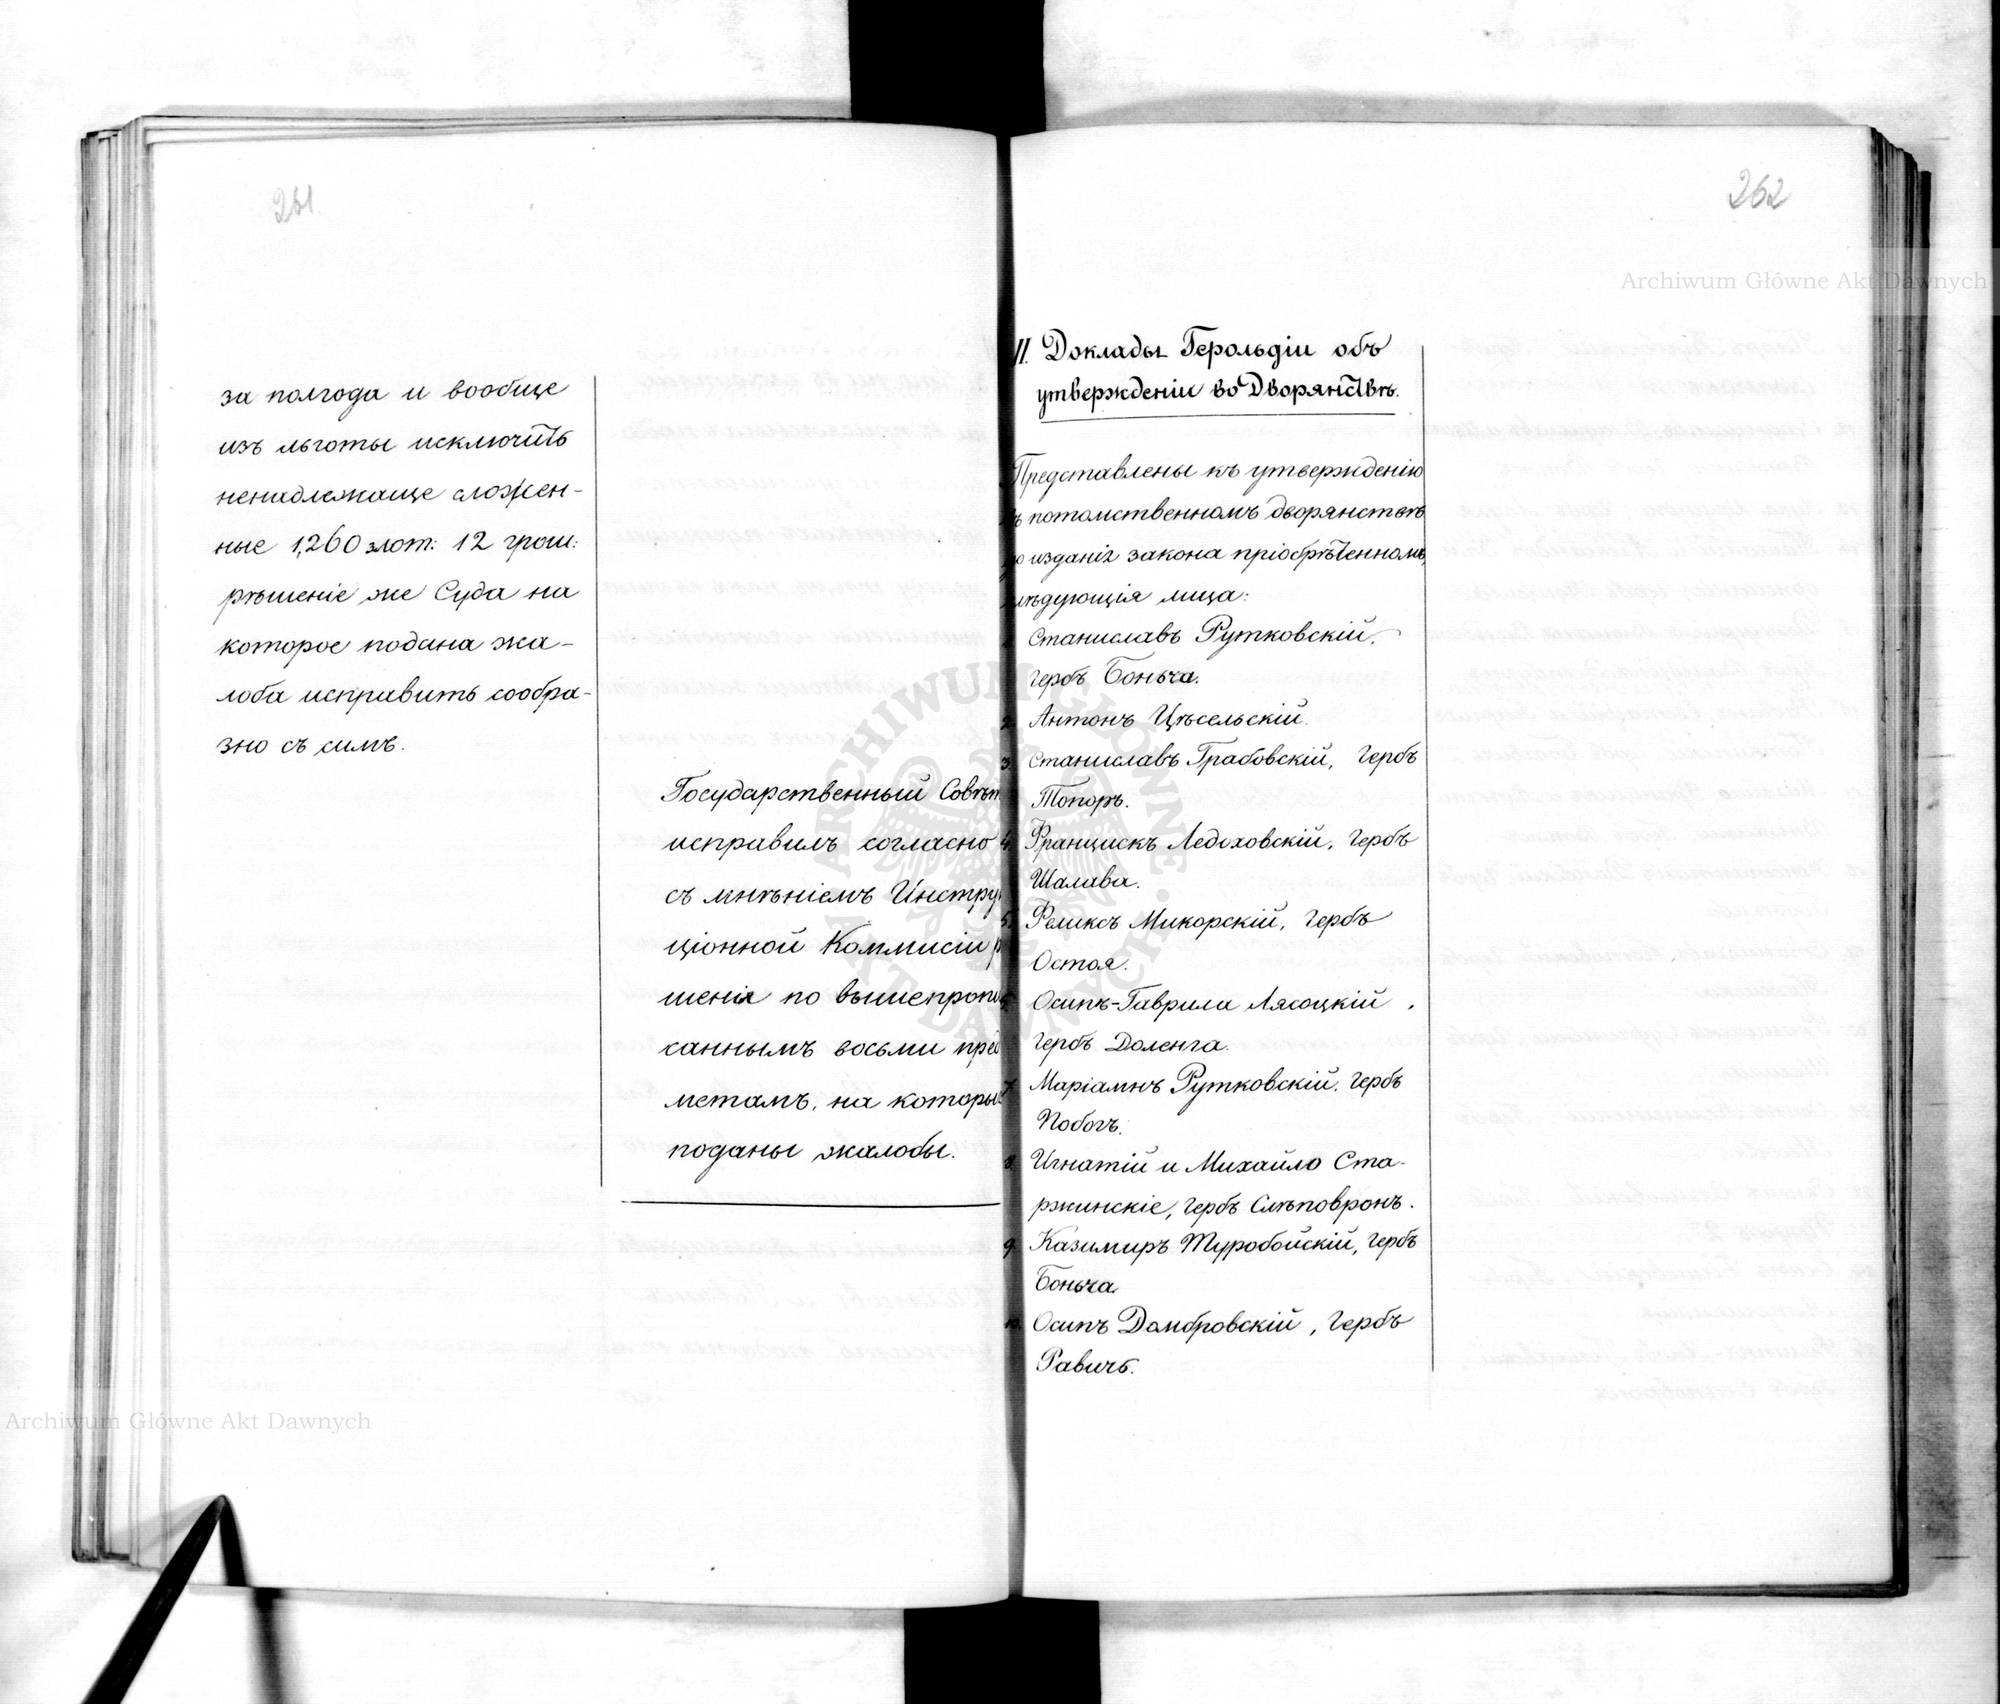 261
за полгода и вообще
изъ льготы исключить
ненадлежаще сложен-
ные 1,260 злот: 12 грош:
рѣшеніе же Суда на
которое подана жа-
лоба исправить сообра-
зно съ симъ.
Государственный Совѣт
исправилъ согласно
съ мнѣніемъ Инстру
ціонной Коммисіи р
шенія по вышепропи
саннымъ восьми пред
метамъ, на которы
поданы жалобы.
262
II. Доклады Герольдіи объ
утвержденіи во Дворянствѣ.
Представлены къ утвержденію
въ потомственномъ дворянствѣ
до изданія закона пріобрѣтенномъ,
слѣдующія лица:
1. Станиславъ Рутковскій,
гербъ Боньча.
2. Антонъ Цѣсельскій.
3. Станиславъ Грабовскій, гербъ
Топоръ.
4. Францискъ Ледоховскій, гербъ
Шалава.
5. Феликсъ Микорскій, гербъ
Остоя.
6. Осипъ-Гаврила Лясоцкій,
гербъ Доленга.
7. Маріамнъ Рутковскій, гербъ
Побогъ.
8. Игнатій и Михайло Ста-
ржинскіе, гербъ Слѣповронъ.
9. Казимиръ Туробойскій, гербъ
Боньча.
10. Осипъ Домбровскій, гербъ
Равичъ.
Archiwum Główne Akt Dawnych
Archiwum Główne Akt Dawnych
ARCHIWUM GŁÓWNE AKT DAWNYCH